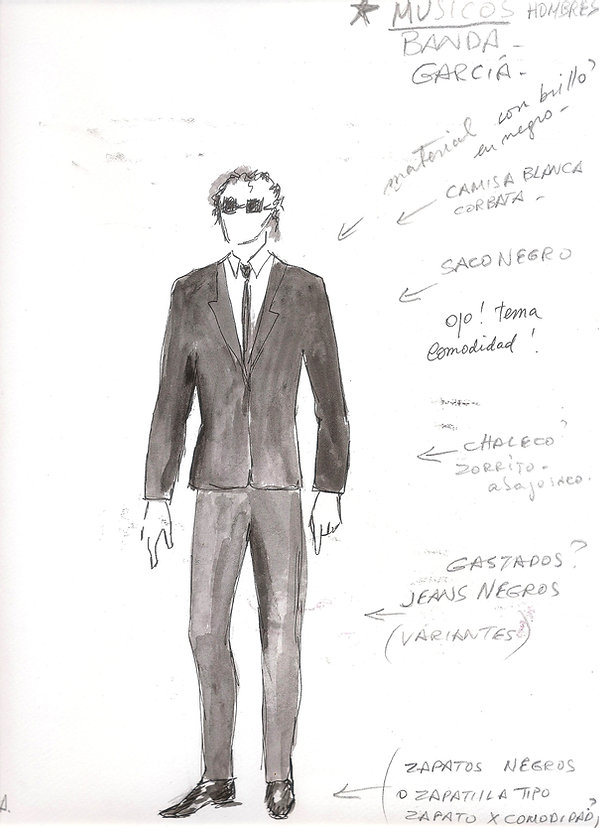 ★ MUSICOS HOMBRES
BANDA -
GARCIÁ -
material con brillo?
en negro -
CAMISA BLANCA
CORBATA -
SACO NEGRO
OJO! tema
Comodidad!
CHALECO?
ZORRITO -
abajo SACO.
GASTADOS?
JEANS NEGROS
(VARIANTES)
(ZAPATOS NEGROS
O ZAPATILLA TIPO
ZAPATO X COMODIDAD?)
A.